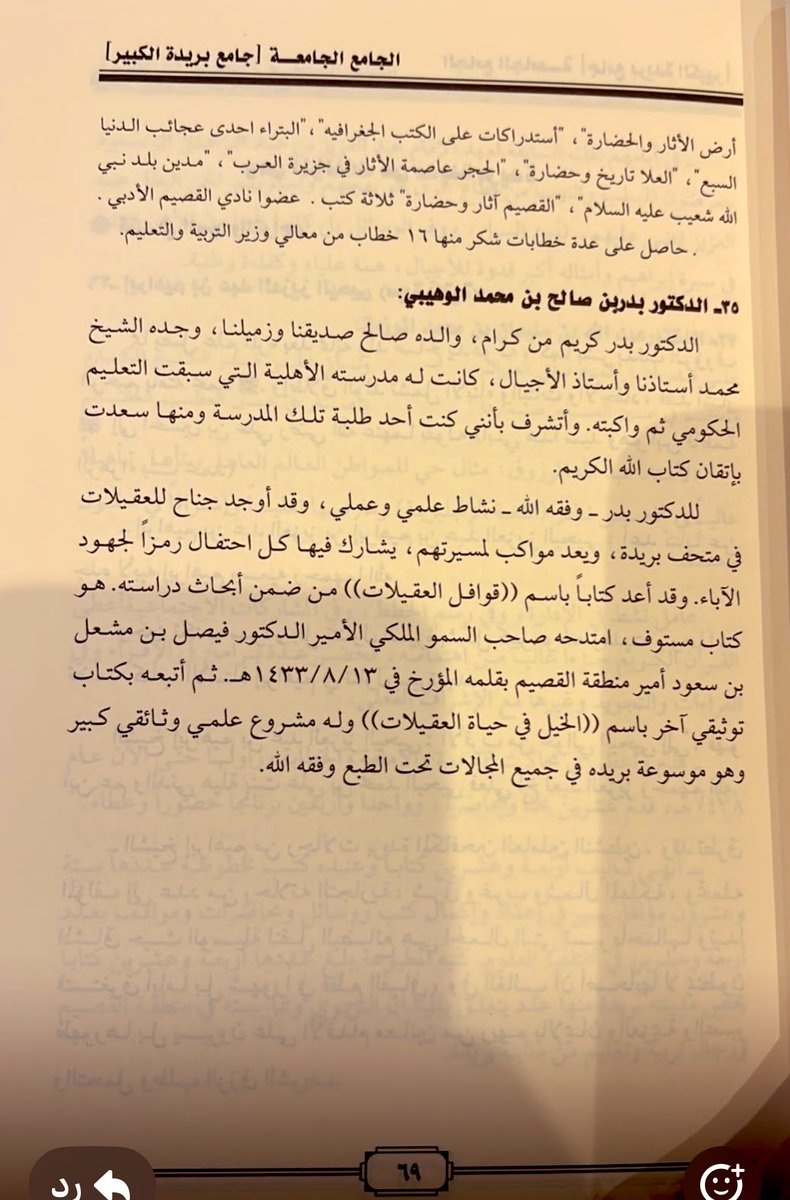 الجامع الجامعـــة [جامع بريدة الكبير]
أرض الأثار والحضارة"، "أستدراكات على الكتب الجغرافيه"، "البتراء احدى عجائب الدنيا
السبع"، "العلا تاريخ وحضارة"، "الحجر عاصمة الأثار في جزيرة العرب"، "مدين بلد نبي
الله شعيب عليه السلام"، "القصيم آثار وحضارة" ثلاثة كتب . عضوا نادي القصيم الأدبي .
. حاصل على عدة خطابات شكر منها ١٦ خطاب من معالي وزير التربية والتعليم.
٣٥ـ الدكتور بدربن صالح بن محمد الوهيبي:
الدكتور بدر كريم من كرام، والده صالح صديقنا وزميلنا، وجده الشيخ
محمد أستاذنا وأستاذ الأجيال، كانت له مدرسته الأهلية التي سبقت التعليم
الحكومي ثم واكبته. وأتشرف بأنني كنت أحد طلبة تلك المدرسة ومنها سعدت
بإتقان كتاب الله الكريم.
للدكتور بدر ـ وفقه الله ـ نشاط علمي وعملي، وقد أوجد جناح للعقيلات
في متحف بريدة، ويعد مواكب لمسيرتهم، يشارك فيها كل احتفال رمزاً لجهود
الآباء. وقد أعد كتاباً باسم ((قوافل العقيلات)) من ضمن أبحاث دراسته. هو
كتاب مستوف، امتدحه صاحب السمو الملكي الأمير الدكتور فيصل بن مشعل
بن سعود أمير منطقة القصيم بقلمه المؤرخ في ١٤٣٣/٨/١٣هـ. ثم أتبعه بكتاب
توثيقي آخر باسم ((الخيل في حياة العقيلات)) وله مشروع علمي وثائقي كبير
وهو موسوعة بريده في جميع المجالات تحت الطبع وفقه الله.
٦٩
رد